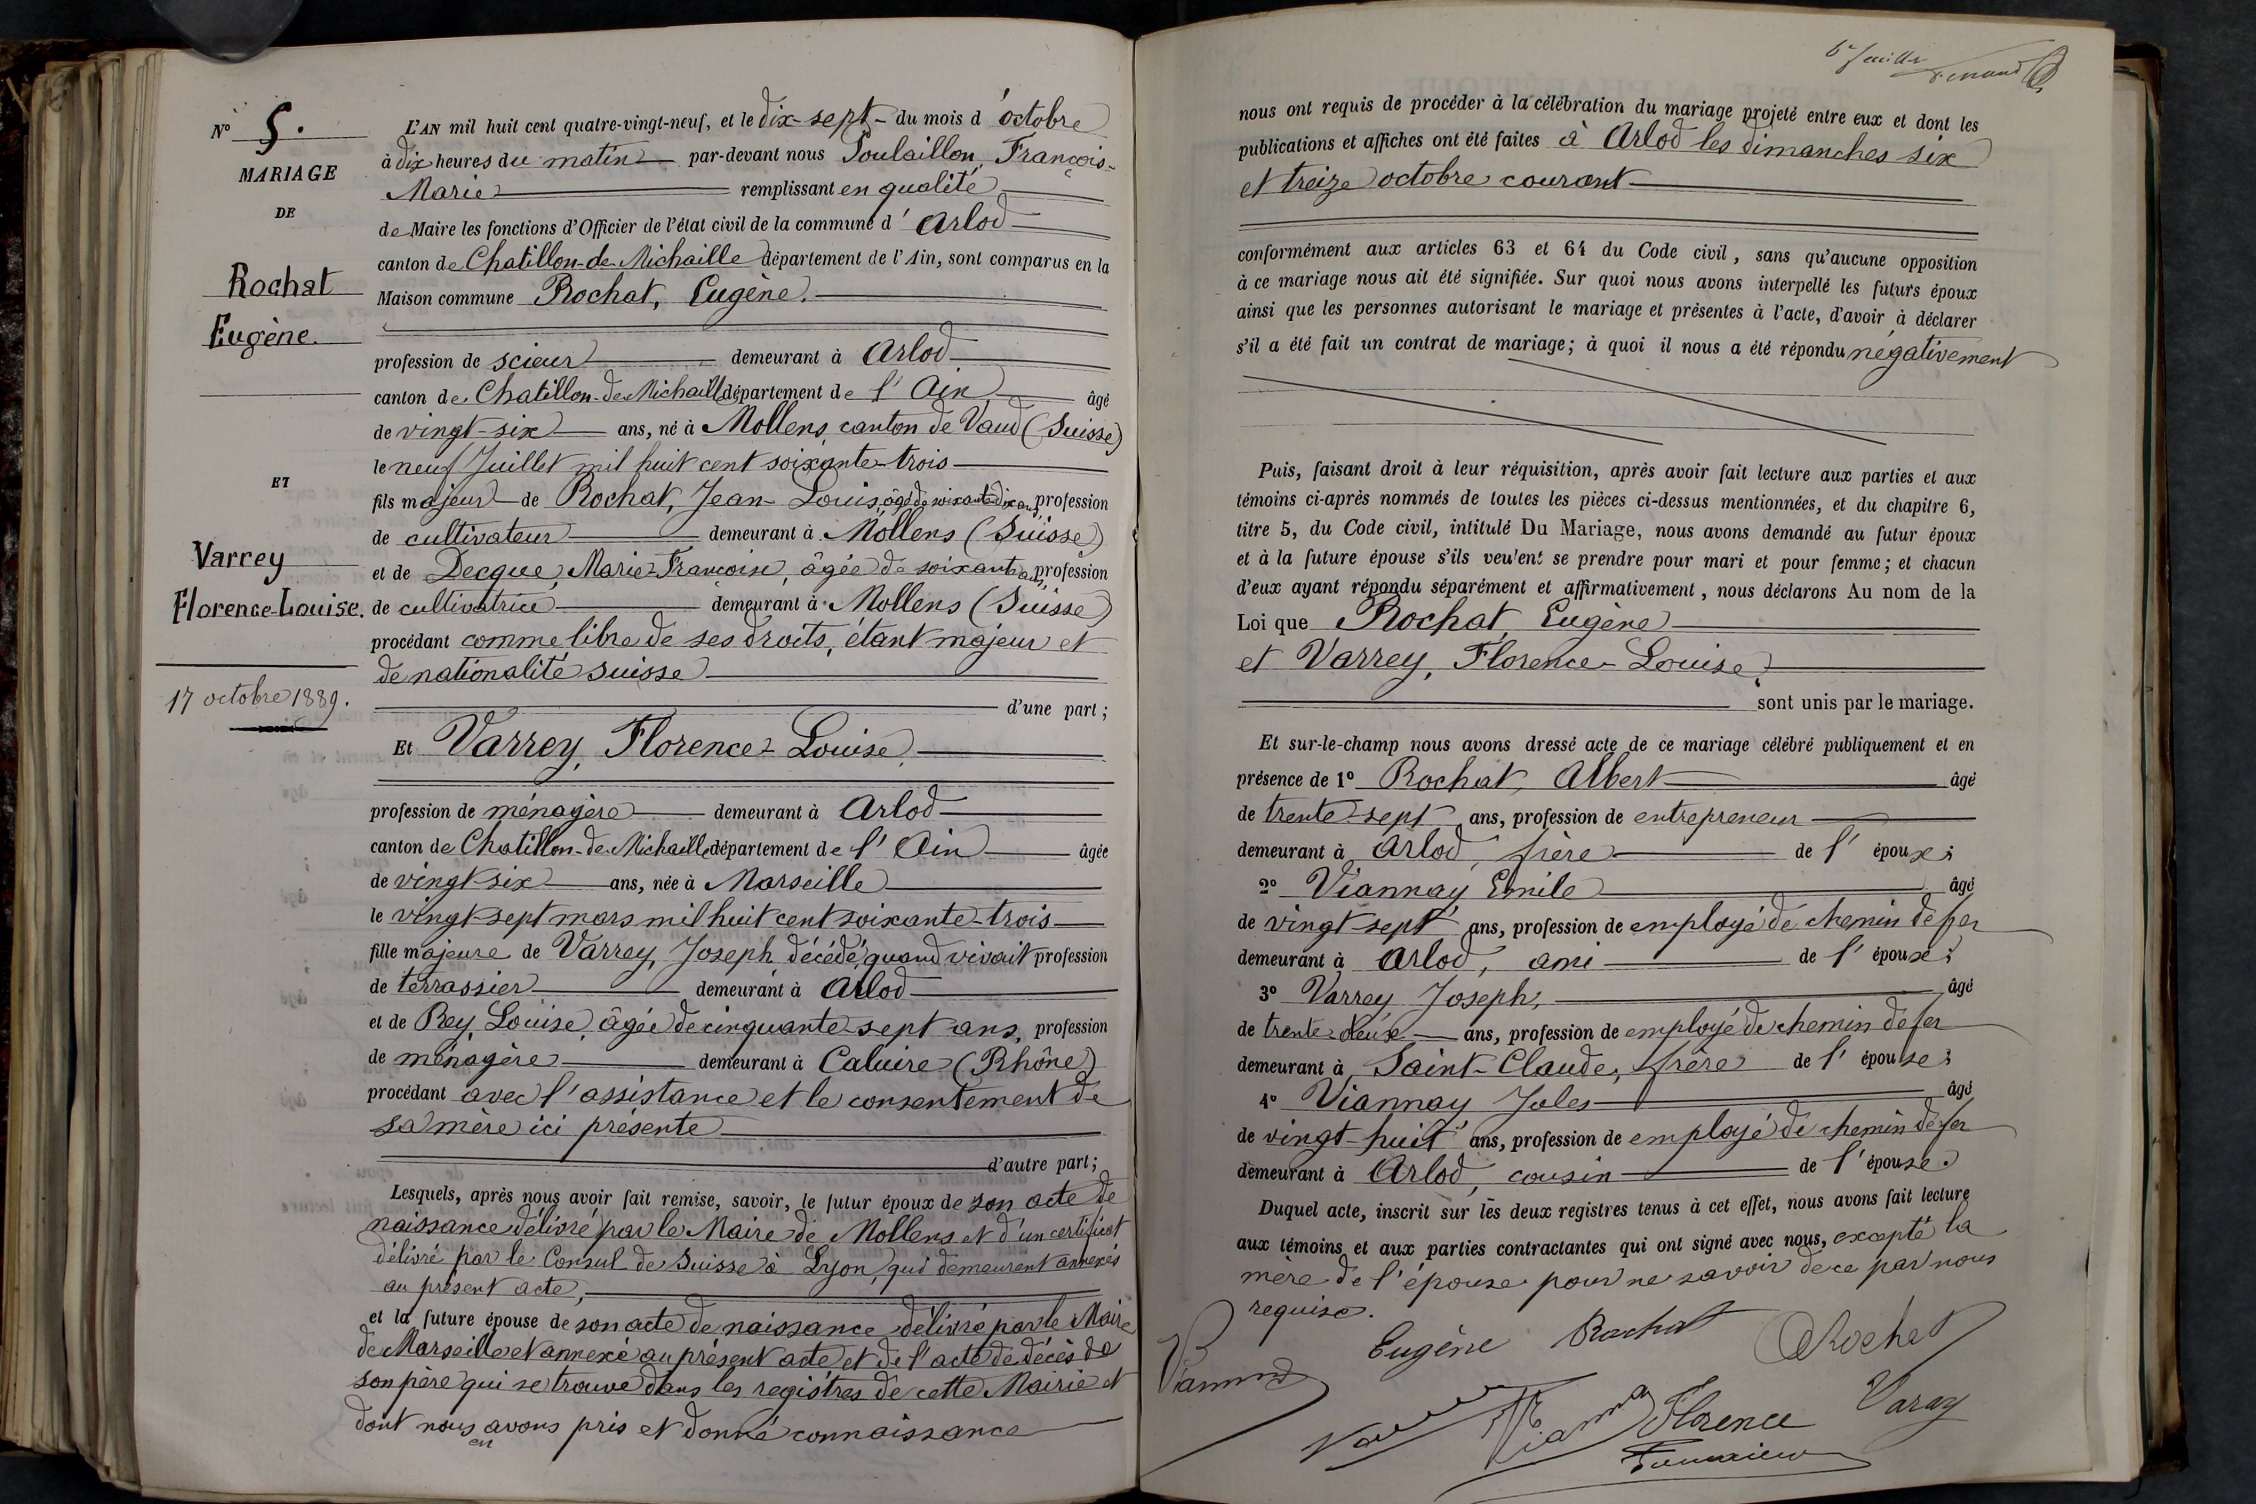 N° 5.
MARIAGE
DE
Rochat
Eugène.
ET
Varrey
Florence-Louise.
17 octobre 1889.
L'AN mil huit cent quatre-vingt-neuf, et le dix-sept du mois d'octobre
à dix heures du matin par-devant nous Poulaillon, François-
Marie remplissant en qualité
de Maire les fonctions d'Officier de l'état civil de la commune d'Arlod
canton de Chatillon-de-Michaille département de l'Ain, sont comparus en la
Maison commune Rochat, Eugène.
profession de scieur demeurant à Arlod
canton de Chatillon-de-Michaille département de l'Ain âgé
de vingt-six ans, né à Mollens, canton de Vaud (Suisse)
le neuf Juillet mil huit cent soixante-trois
fils majeur de Rochat, Jean-Louis, âgé de soixante-dix ans, profession
de cultivateur demeurant à Mollens (Suisse)
et de Decque, Marie-Françoise, âgée de soixante ans, profession
de cultivatrice demeurant à Mollens (Suisse)
procédant comme libre de ses droits, étant majeur et
de nationalité suisse
d'une part;
Et Varrey, Florence-Louise,
profession de ménagère demeurant à Arlod
canton de Chatillon-de-Michaille département de l'Ain âgée
de vingt-six ans, née à Marseille
le vingt-sept mars mil huit cent soixante-trois
fille majeure de Varrey, Joseph décédé, quand vivait profession
de terrassier demeurant à Arlod
et de Rey, Louise, âgée de cinquante-sept ans, profession
de ménagère demeurant à Caluire (Rhône)
procédant avec l'assistance et le consentement de
sa mère ici présente
d'autre part;
Lesquels, après nous avoir fait remise, savoir, le futur époux de son acte de
naissance délivré par le Maire de Mollens et d'un certificat
délivré par le Consul de Suisse à Lyon, qui demeurent annexés
au présent acte,
et la future épouse de son acte de naissance délivré par le Maire
de Marseille et annexé au présent acte et de l'acte de décès de
son père qui se trouve dans les registres de cette Mairie et
dont nous en avons pris et donné connaissance
6e feuille
nous ont requis de procéder à la célébration du mariage projeté entre eux et dont les
publications et affiches ont été faites à Arlod les dimanches six
et treize octobre courant
conformément aux articles 63 et 64 du Code civil, sans qu'aucune opposition
à ce mariage nous ait été signifiée. Sur quoi nous avons interpellé les futurs époux
ainsi que les personnes autorisant le mariage et présentes à l'acte, d'avoir à déclarer
s'il a été fait un contrat de mariage; à quoi il nous a été répondu négativement
Puis, faisant droit à leur réquisition, après avoir fait lecture aux parties et aux
témoins ci-après nommés de toutes les pièces ci-dessus mentionnées, et du chapitre 6,
titre 5, du Code civil, intitulé Du Mariage, nous avons demandé au futur époux
et à la future épouse s'ils veulent se prendre pour mari et pour femme; et chacun
d'eux ayant répondu séparément et affirmativement, nous déclarons Au nom de la
Loi que Rochat Eugène
et Varrey, Florence-Louise,
sont unis par le mariage.
Et sur-le-champ nous avons dressé acte de ce mariage célébré publiquement et en
présence de 1° Rochat, Albert âgé
de trente-sept ans, profession de entrepreneur
demeurant à Arlod, frère de l'époux;
2° Viannay Emile âgé
de vingt-sept ans, profession de employé de chemin de fer
demeurant à Arlod, ami de l'époux;
3° Varrey Joseph, âgé
de trente-deux ans, profession de employé de chemin de fer
demeurant à Saint-Claude, frère de l'épouse;
4° Viannay Jules âgé
de vingt-huit ans, profession de employé de chemin de fer
demeurant à Arlod, cousin de l'épouse.
Duquel acte, inscrit sur les deux registres tenus à cet effet, nous avons fait lecture
aux témoins et aux parties contractantes qui ont signé avec nous, excepté la
mère de l'épouse pour ne savoir de ce par nous
requise.
Eugène Rochat
ARochat
Florence Varay